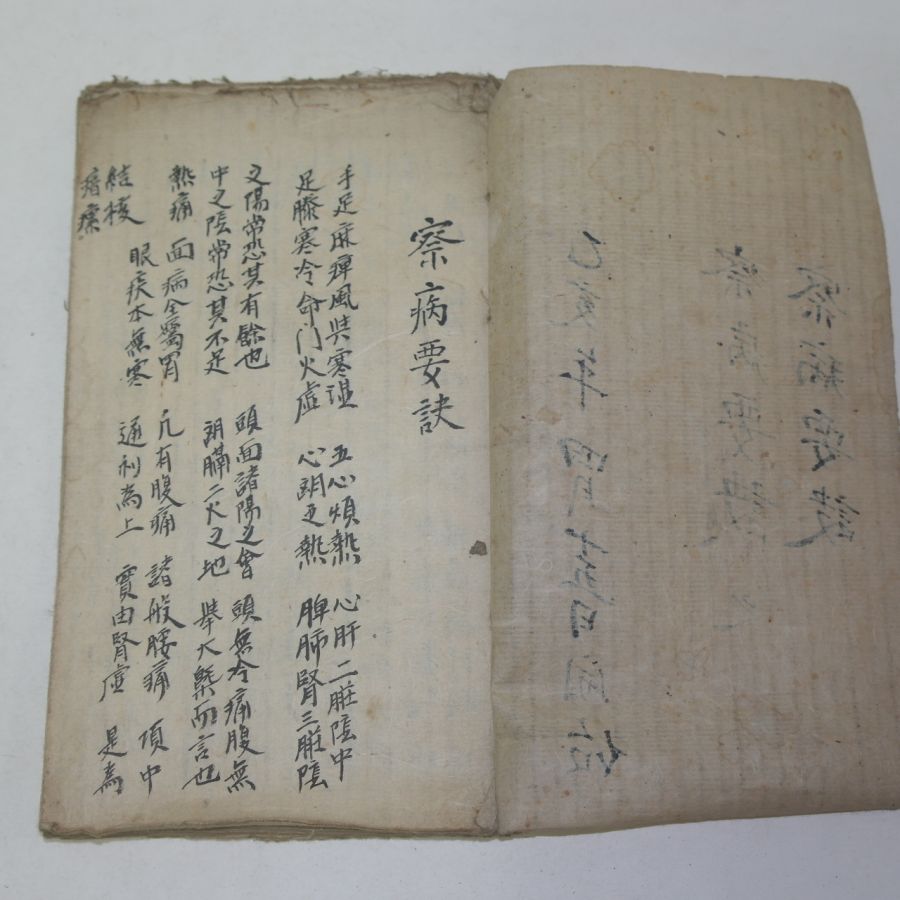 察病要訣
察病要訣
年四月十五日
察病要訣
手足麻痺風與寒濕 五心煩熱 心肝二脏陰中
足膝寒冷命门火虛 心胸之熱 脾肺腎三脏陰
之陽常恐其有餘也 頭面諸陽之會 頭無冷痛腹無
中之陰常恐其不足 胸膈二火之地 舉大槩而言也
熱痛 面病全屬胃 凡有腹痛 諸般腰痛 項中
眼疾本無寒 通利為上 實由腎虛 是為
結核
瘰